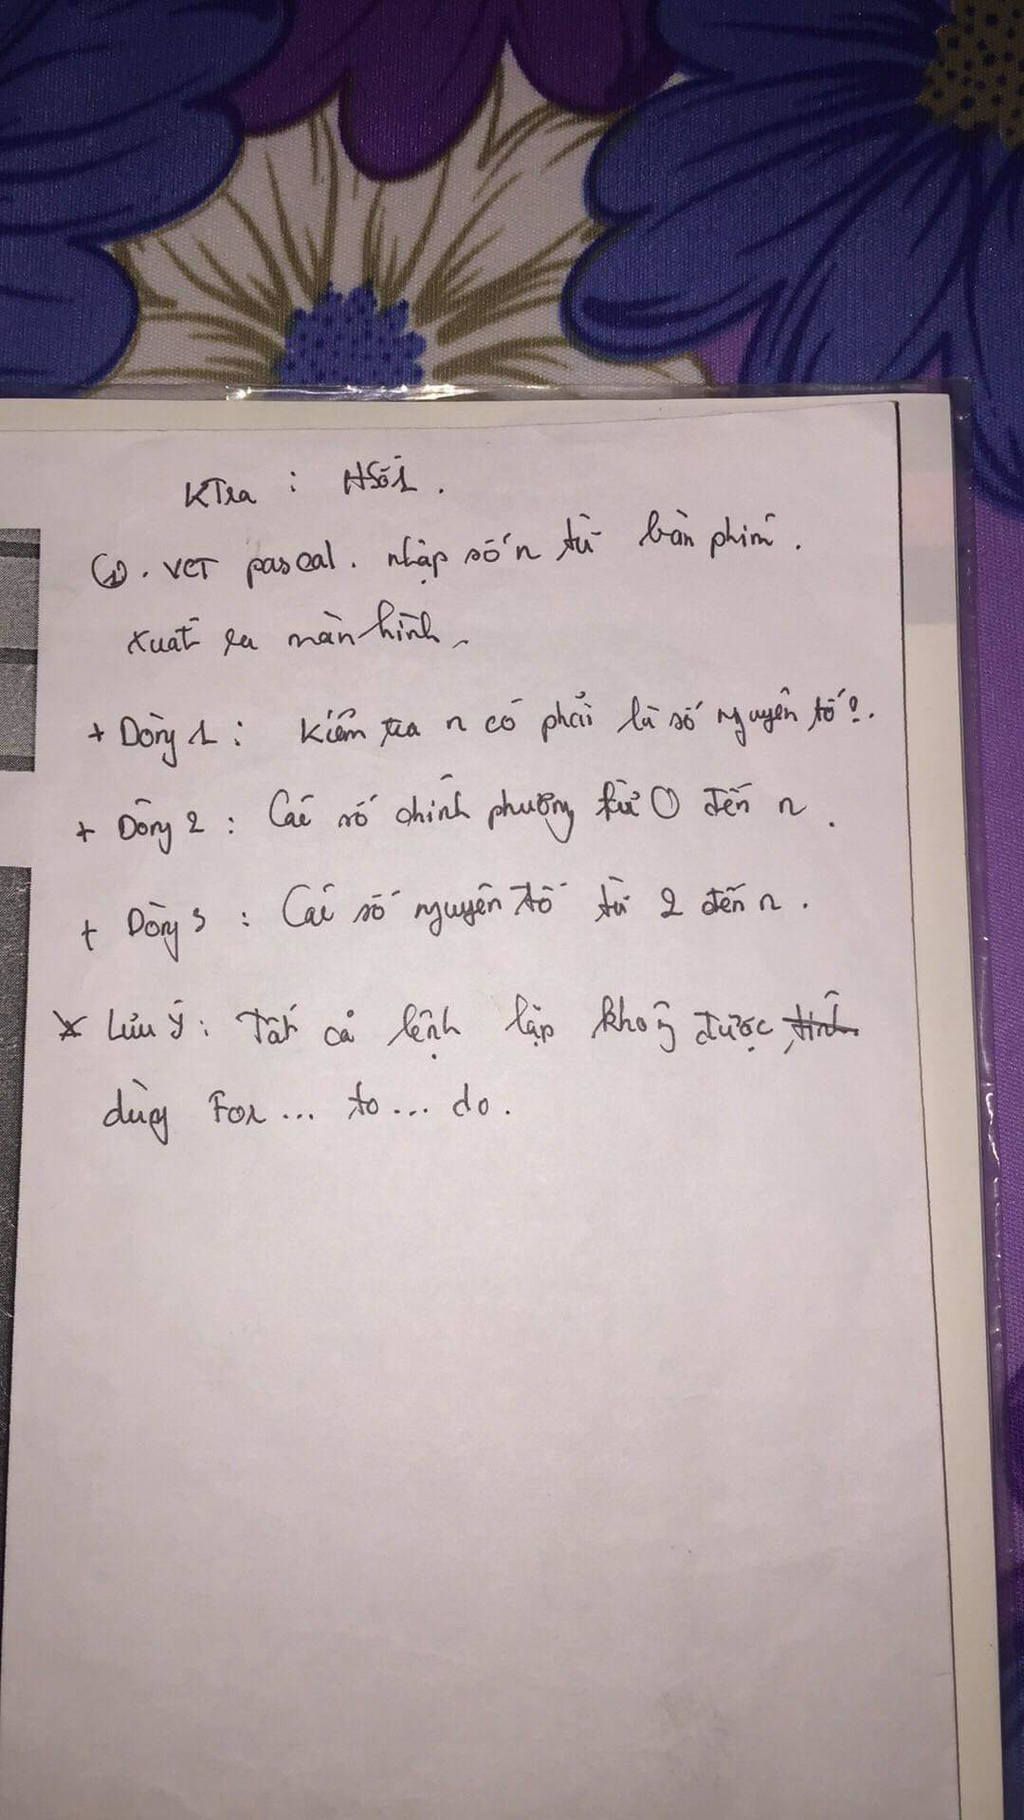 KTra : HSố1.
①. VCT pascal. nhập số n từ bàn phím.
xuất ra màn hình.
+ Dòng 1: Kiểm tra n có phải là số nguyên tố?.
+ Dòng 2: Các số chính phương từ 0 đến n.
+ Dòng 3: Các số nguyên tố từ 2 đến n.
* Lưu ý: Tất cả lệnh lặp không được
dùng For ... to ... do.